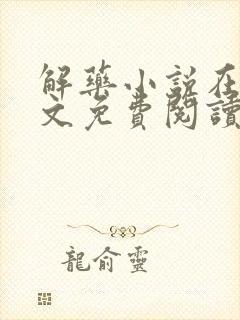 解藥小說在
文免費閱讀
龍俞靈